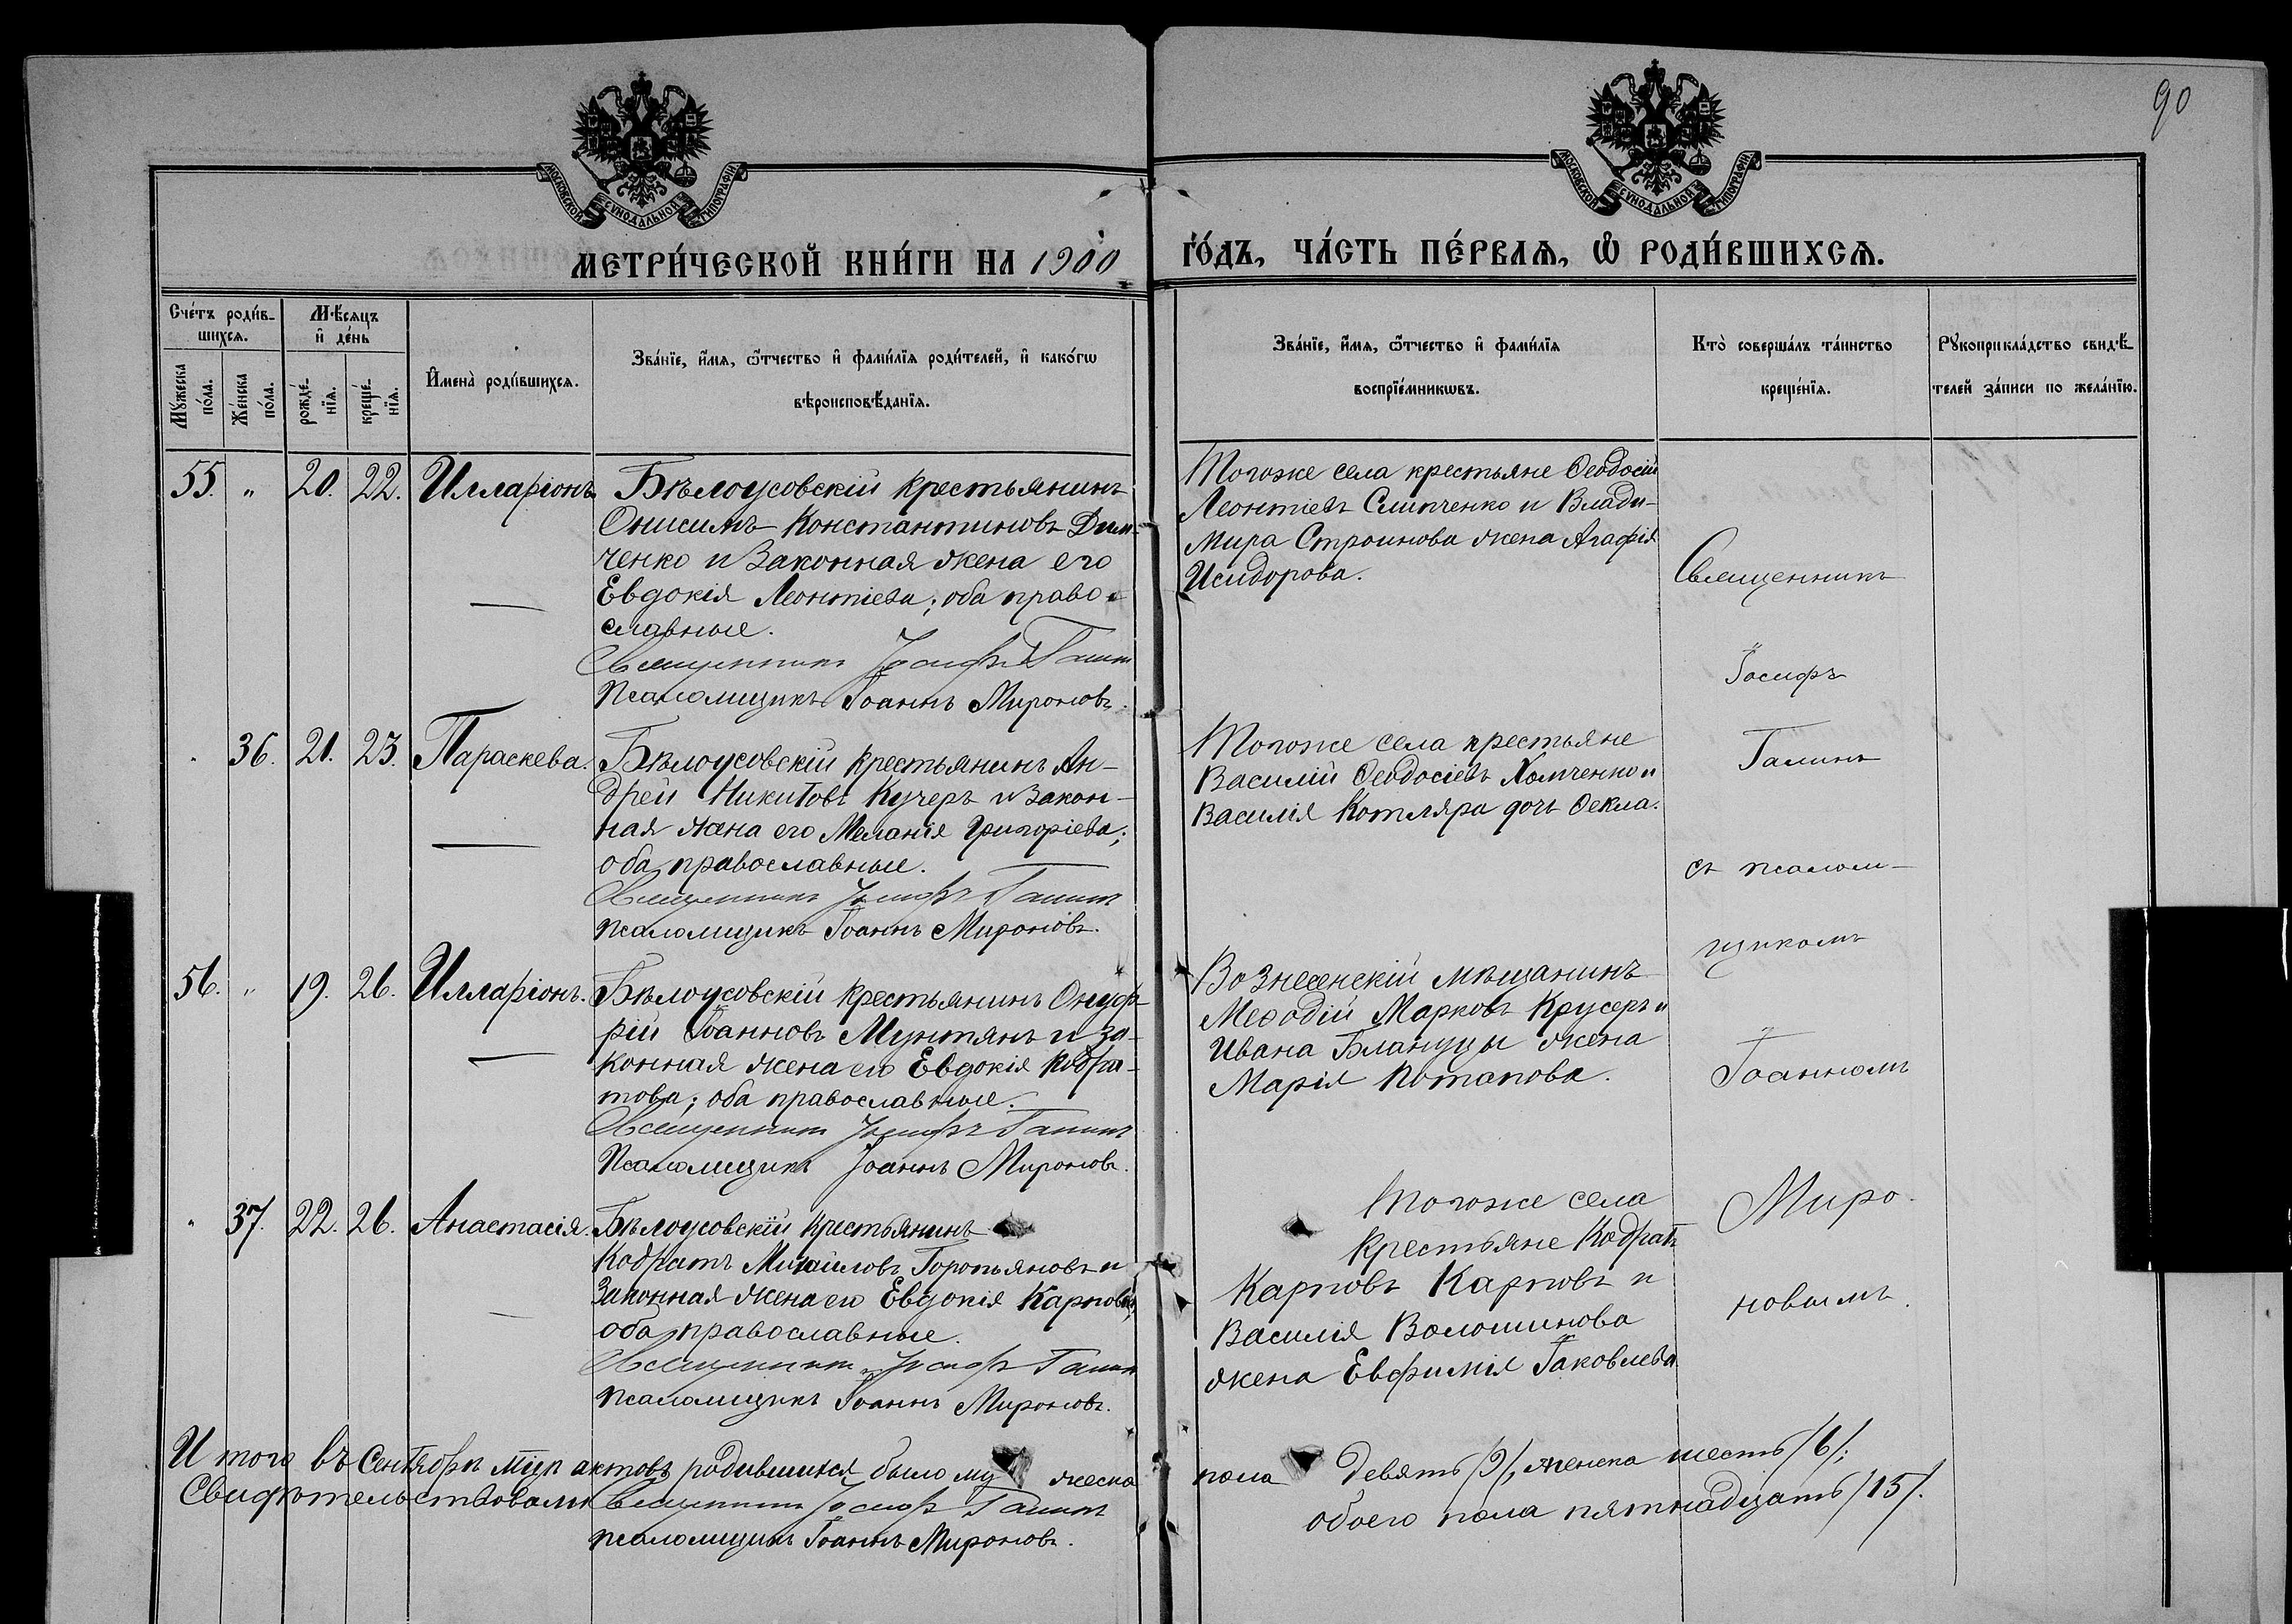 90
МОСКОВСКОЙ СѴНОДАЛЬНОЙ ТИПОГРАФІИ
МОСКОВСКОЙ СѴНОДАЛЬНОЙ ТИПОГРАФІИ
МЕТРИ́ЧЕСКОЙ КНИ́ГИ НА 1900
ГО́ДЪ, ЧА́СТЬ ПЕ́РВАѦ, Ѽ РОДИ́ВШИХСѦ.
Сче́тъ роди́в-
шихсѧ.
Мѣ́сѧцъ
и҆ де́нь
Мꙋ́жеска
по́ла.
Же́нска
по́ла.
рожде́-
нїѧ.
креще́-
нїѧ.
И҆мена̀ роди́вшихсѧ.
Зва́нїе, и҆́мѧ, ѻ҆́тчество и҆ фами́лїѧ роди́телей, и҆ како́гѡ
вѣроисповѣ́данїѧ.
Зва́нїе, и҆́мѧ, ѻ҆́тчество и҆ фами́лїѧ
воспрїе́мникѡвъ.
Кто̀ соверша́лъ та́инство
креще́нїѧ.
Рꙋкоприкла́дство свидѣ́-
телей за́писи по жела́нїю.
55. " 20. 22. Илларіонъ. Бѣлоусовскій крестьянинъ
Онисимъ Константиновъ Дим-
ченко и законная жена его
Евдокія Леонтіева; оба право-
славные.
Священникъ Іосифъ Галинъ
Псаломщикъ Іоаннъ Мироновъ.
Тогоже села крестьяне Ѳеодосій
Леонтіевъ Слипченко и Влади-
мира Строинова жена Агафія
Исидорова.
Священникъ
Іосифъ
Галинъ
съ псалом-
щикомъ
Іоанномъ
Миро-
новымъ.
" 36. 21. 23. Параскева. Бѣлоусовскій крестьянинъ Ан-
дрей Никитовъ Кучеръ и закон-
ная жена его Меланія Григоріева;
оба православные.
Священникъ Іосифъ Галинъ
псаломщикъ Іоаннъ Мироновъ.
Тогоже села крестьяне
Василій Ѳеодосіевъ Хомченко и
Василія Котляра дочь Ѳекла.
56. " 19. 26. Илларіонъ. Бѣлоусовскій крестьянинъ Онуф-
рій Іоанновъ Мунтянъ и за-
конная жена его Евдокія Кодра-
това; оба православные.
Священникъ Іосифъ Галинъ
Псаломщикъ Іоаннъ Мироновъ.
Вознесенскій мѣщанинъ
Меѳодій Марковъ Крусеръ и
Ивана Блануцы жена
Марія Потапова.
" 37. 22. 26. Анастасія. Бѣлоусовскій крестьянинъ
Кодратъ Михайловъ и
законная жена его Евдокія Карпова;
оба православные.
Священникъ Іосифъ Галинъ
псаломщикъ Іоаннъ Мироновъ.
Тогоже села
крестьяне Кодратъ
Карповъ Карповъ и
Василія Волошинова
жена Евфимія Іаковлева
Итого въ Сентябрѣ мцѣ актовъ родившихся было му жеска пола девять /9/, женска шесть /6/;
обоего пола пятнадцать /15/.
Свидѣтельствовали Священникъ Іосифъ Галинъ
псаломщикъ Іоаннъ Мироновъ.